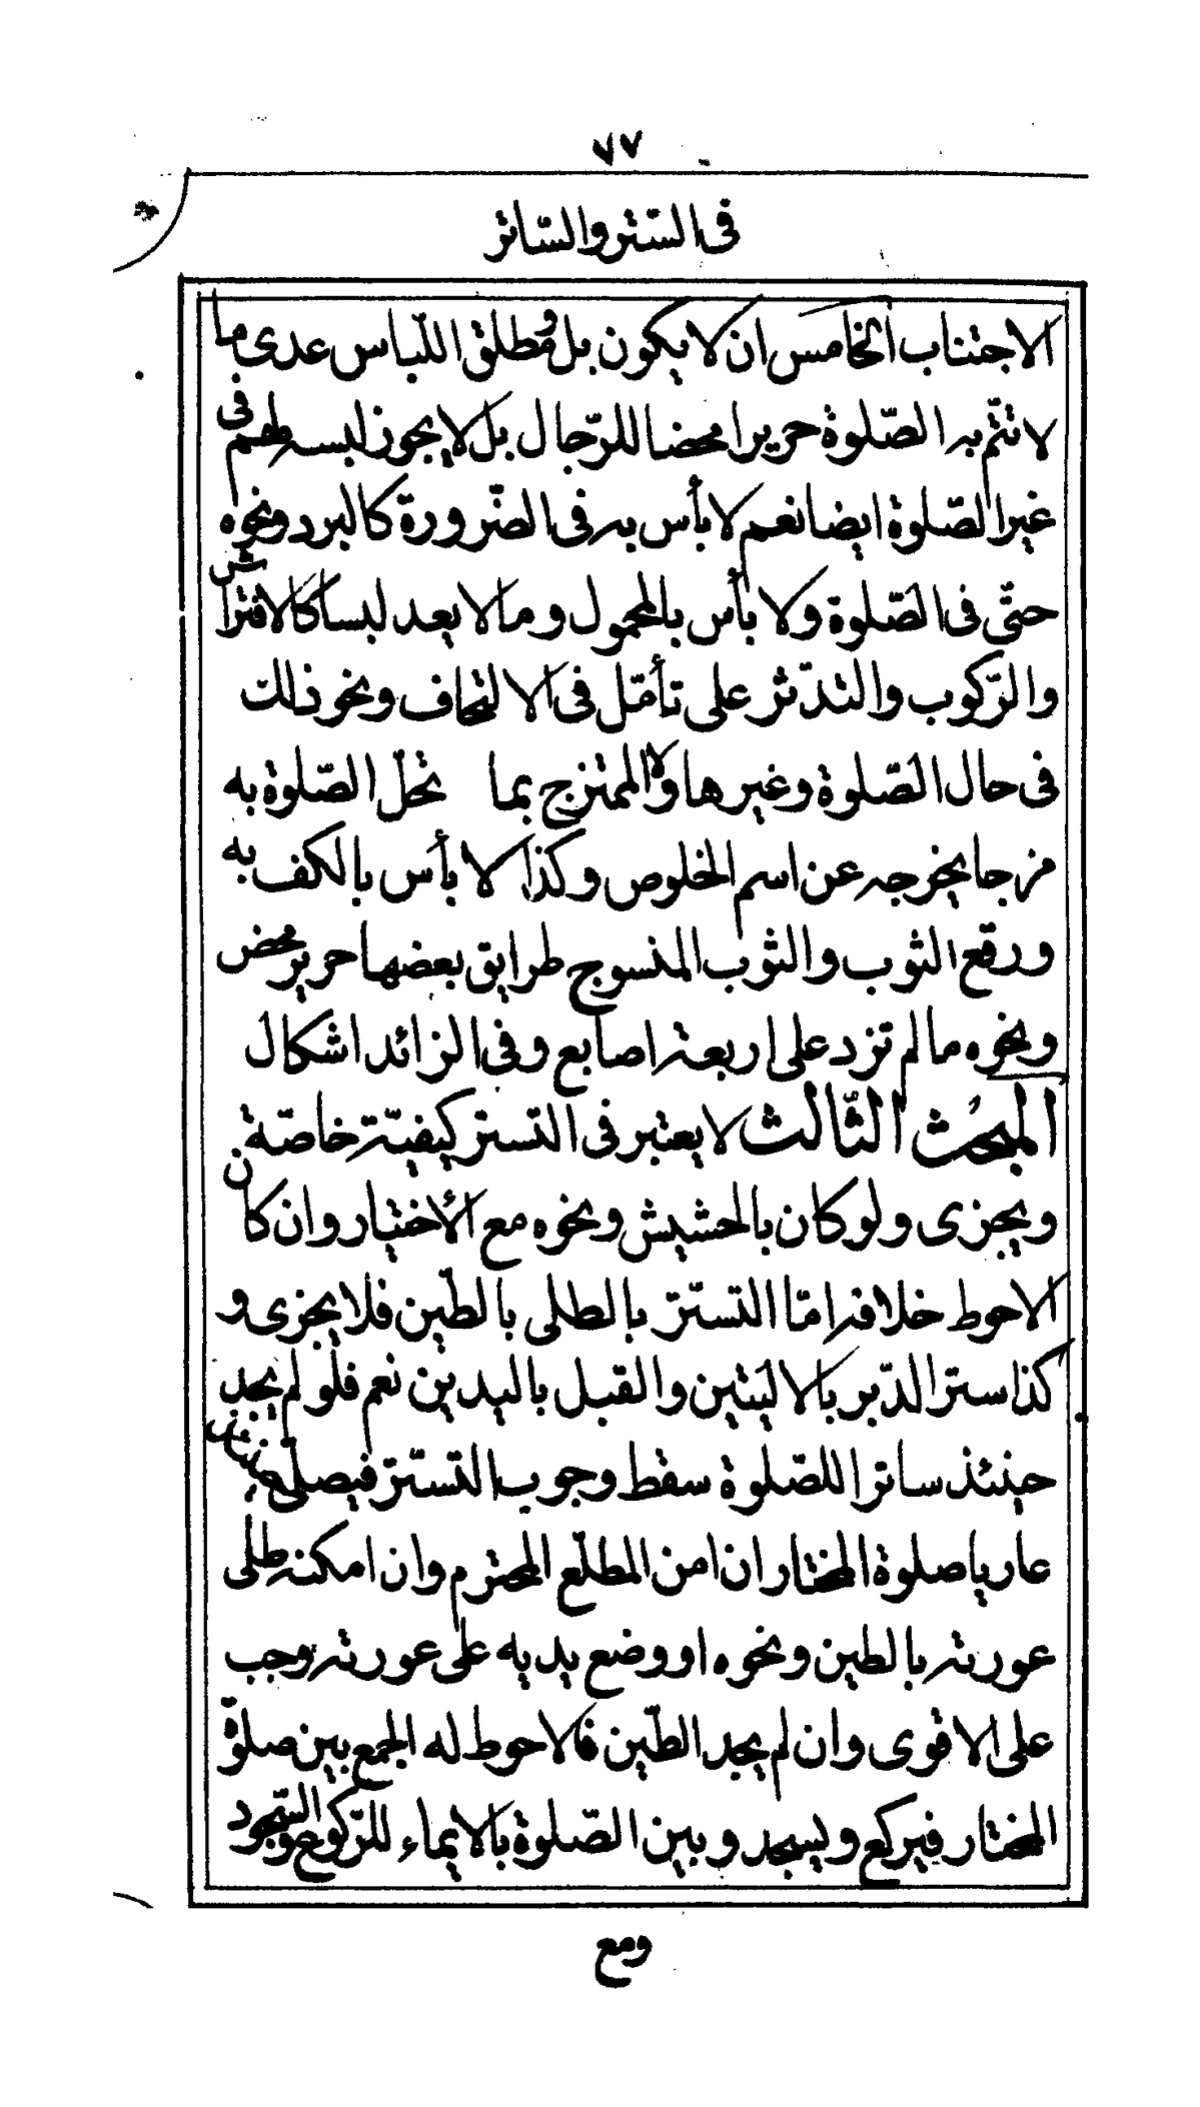 ٧٧
فى السّتر والسّاتر
الاجتناب الخامس ان لا يكون بل ومطلق اللّباس عدى ما
لا تتمّ به الصّلوة حريرا محضا للرّجال بل لا يجوز لبسه لهم فى
غير الصّلوة ايضا نعم لا بأس به فى الضّرورة كالبرد ونحوه
حتّى فى الصّلوة ولا بأس بالمحمول وما لا يعد لبسا كالافتراش
والرّكوب والتدّثر على تأمّل فى الالتحاف ونحو ذلك
فى حال الصّلوة وغيرها ولا الممتزج بما تحلّ الصّلوة به
مزجا يخرجه عن اسم الخلوص وكذا لا بأس بالكف به
ورقع الثوب والثوب المنسوج طرايق بعضها حرير محض
ونحوه ما لم تزد على اربعة اصابع وفى الزائد اشكال
المبحث الثّالث لا يعتبر فى التستر كيفيّة خاصّة
ويجزى ولو كان بالحشيش ونحوه مع الأختيار وان كان
الاحوط خلافه امّا التستّر بالطلى بالطّين فلا يجزى و
كذا ستر الدّبر بالاليتين والقبل باليدين نعم فلو لم يجد
حينئذ ساترا للصّلوة سقط وجوب التستّر فيصلّى حينئذ
عاريا صلوة المختار ان امن المطلّع المحترم وان امكنه طلى
عورته بالطين ونحوه او وضع يديه على عورته وجب
على الاقوى وان لم يجد الطّين فالاحوط له الجمع بين صلوة
المختار فيركع ويسجد وبين الصّلوة بالايماء للرّكوع والسّجود
ومع